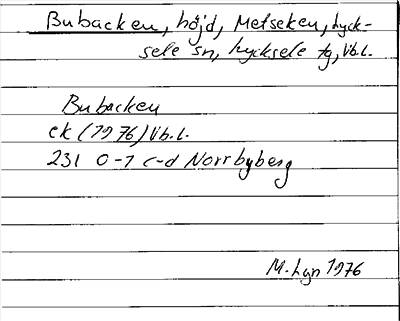 Bubacken, höjd, Metseken, Lyck-
sele sn, Lycksele tg, Vb.l.
Bubacken
ek (1976) Vb.l.
231 0-1 c-d Norrbyberg
M. Lgn 1976